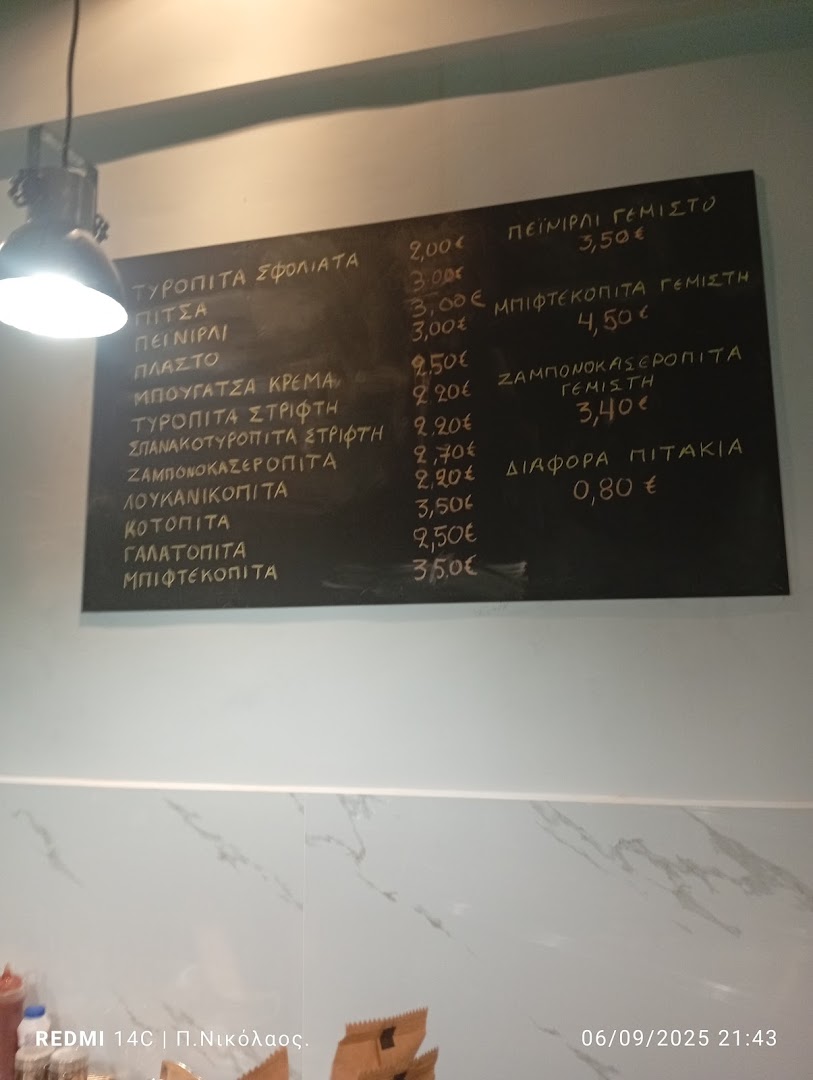 ΤΥΡΟΠΙΤΑ ΣΦΟΛΙΑΤΑ 2,00€
ΠΙΤΣΑ 3,00€
ΠΕΙΝΙΡΛΙ 3,00€
ΠΛΑΣΤΟ 3,00€
ΜΠΟΥΓΑΤΣΑ ΚΡΕΜΑ 2,50€
ΤΥΡΟΠΙΤΑ ΣΤΡΙΦΤΗ 2,20€
ΣΠΑΝΑΚΟΤΥΡΟΠΙΤΑ ΣΤΡΙΦΤΗ 2,20€
ΖΑΜΠΟΝΟΚΑΣΕΡΟΠΙΤΑ 2,70€
ΛΟΥΚΑΝΙΚΟΠΙΤΑ 2,20€
ΚΟΤΟΠΙΤΑ 3,50€
ΓΑΛΑΤΟΠΙΤΑ 2,50€
ΜΠΙΦΤΕΚΟΠΙΤΑ 3,50€
ΠΕΪΝΙΡΛΙ ΓΕΜΙΣΤΟ
3,50€
ΜΠΙΦΤΕΚΟΠΙΤΑ ΓΕΜΙΣΤΗ
4,50€
ΖΑΜΠΟΝΟΚΑSΕΡΟΠΙΤΑ
ΓΕΜΙΣΤΗ
3,40€
ΔΙΑΦΟΡΑ ΠΙΤΑΚΙΑ
0,80 €
REDMI 14C | Π.Νικόλαος.
06/09/2025 21:43